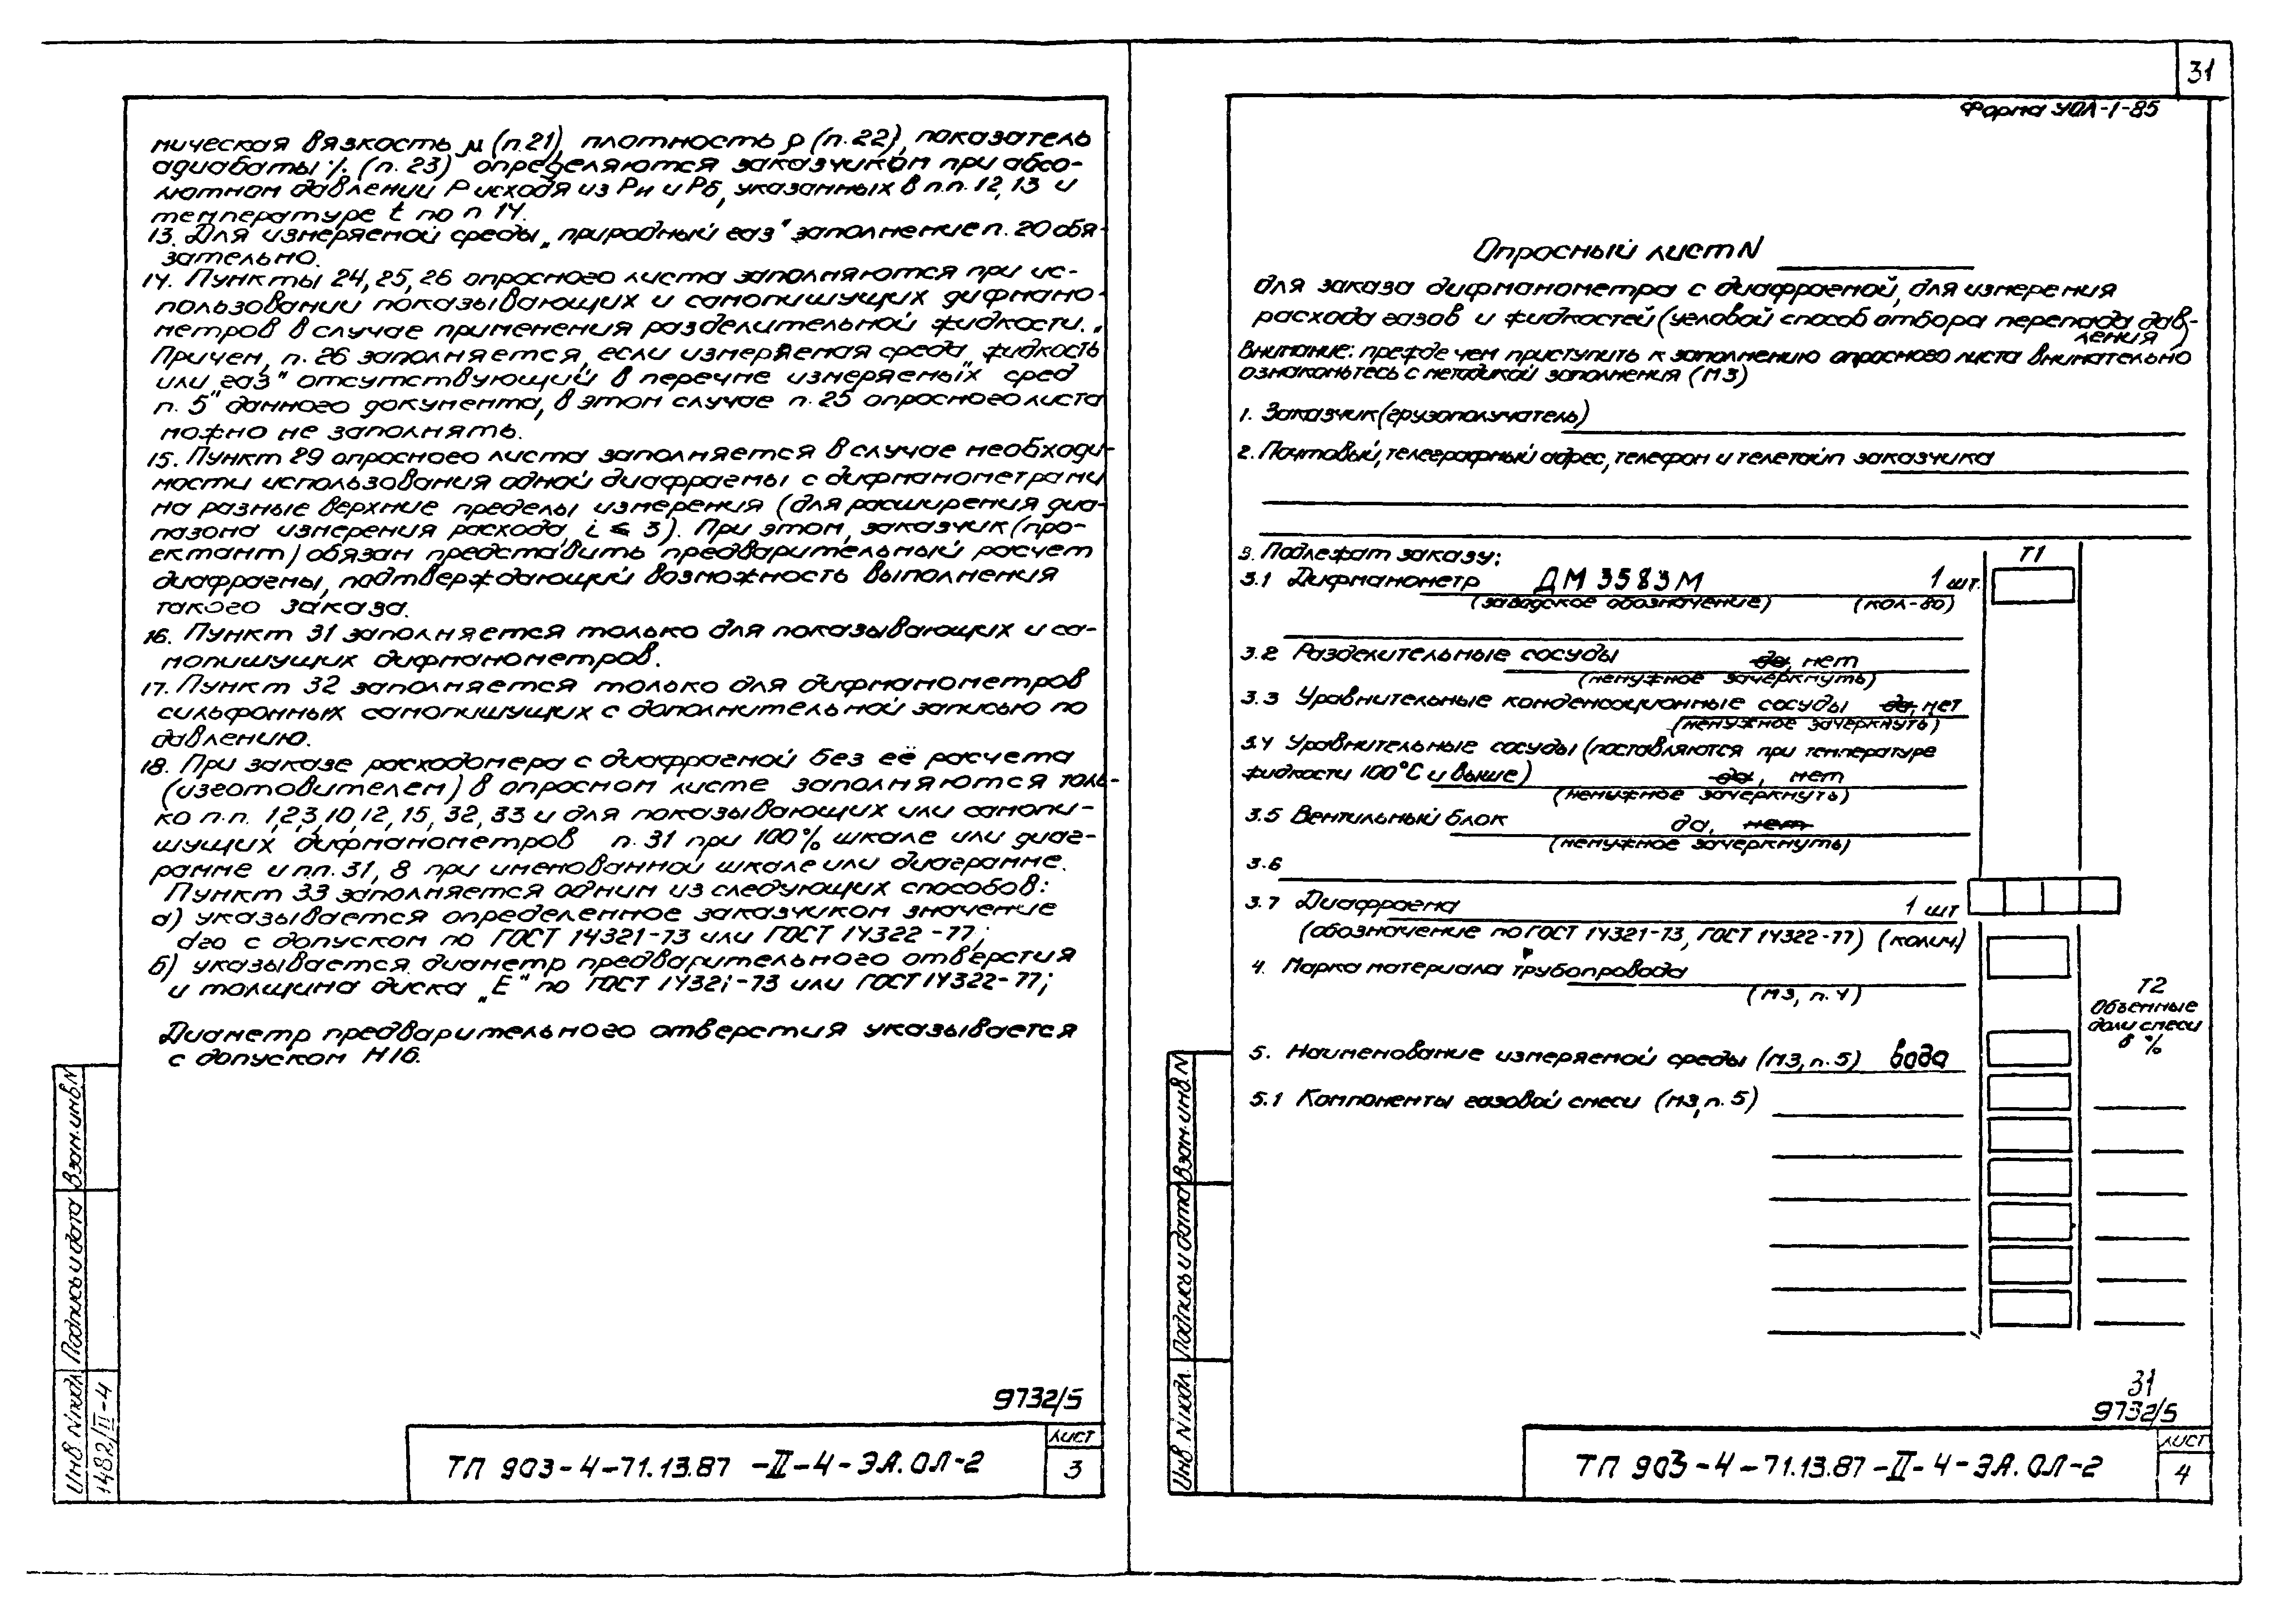 мическая вязкость μ (п.21), плотность ρ (п.22), показатель
адиабаты χ (п. 23) определяются заказчиком при абсо-
лютном давлении Р исходя из Рн и Рб, указанных в п.п. 12,13 и
температуре t по п 14.
13. Для измеряемой среды „природный газ" заполнение п. 20 обя-
зательно.
14. Пункты 24, 25, 26 опросного листа заполняются при ис-
пользовании показывающих и самопишущих дифмано-
метров в случае применения разделительной жидкости.
Причем, п. 26 заполняется, если измеряемая среда „жидкость
или газ" отсутствующий в перечне измеряемых сред
п. 5" данного документа, в этом случае п. 25 опросного листа
можно не заполнять.
15. Пункт 29 опросного листа заполняется в случае необходи-
мости использования одной диафрагмы с дифманометрами
на разные верхние пределы измерения (для расширения диа-
пазона измерения расхода, i ≤ 3). При этом, заказчик (про-
ектант) обязан представить предварительный расчет
диафрагмы, подтверждающий возможность выполнения
такого заказа.
16. Пункт 31 заполняется только для показывающих и са-
мопишущих дифманометров.
17. Пункт 32 заполняется только для дифманометров
сильфонных самопишущих с дополнительной записью по
давлению.
18. При заказе расходомера с диафрагмой без её расчета
(изготовителем) в опросном листе заполняются толь-
ко п.п. 1,2,3,10,12, 15, 32, 33 и для показывающих или самопи-
шущих дифманометров п. 31 при 100% шкале или диаг-
рамме и пп. 31, 8 при именованной шкале или диаграмме.
Пункт 33 заполняется одним из следующих способов:
а) указывается определенное заказчиком значение
d20 с допуском по ГОСТ 14321-73 или ГОСТ 14322-77;
б) указывается диаметр предварительного отверстия
и толщина диска „Е" по ГОСТ 14321-73 или ГОСТ 14322-77;
Диаметр предварительного отверстия указывается
с допуском Н16.
9732/5
ТП 903-4-71.13.87 -II-4-ЭА.ОЛ-2
Лист
3
Инв. N подл.
Подпись и дата
Взам. инв. N
1482/II-4
31
Форма УОЛ-1-85
Опросный лист N
для заказа дифманометра с диафрагмой, для измерения
расхода газов и жидкостей (угловой способ отбора перепада дав-
ления)
Внимание: прежде чем приступить к заполнению опросного листа внимательно
ознакомьтесь с методикой заполнения (МЗ)
1. Заказчик (грузополучатель)
2. Почтовый, телеграфный адрес, телефон и телетайп заказчика
3. Подлежат заказу:
Т1
3.1 Дифманометр ДМ 3583М 1 шт.
(заводское обозначение) (кол-во)
3.2 Разделительные сосуды да, нет
(ненужное зачеркнуть)
3.3 Уравнительные конденсационные сосуды да, нет
(ненужное зачеркнуть)
3.4 Уравнительные сосуды (поставляются при температуре
жидкости 100°С и выше) да, нет
(ненужное зачеркнуть)
3.5 Вентильный блок да, нет
(ненужное зачеркнуть)
3.6
3.7 Диафрагма 1 шт
(обозначение по ГОСТ 14321-73, ГОСТ 14322-77) (колич.)
4. Марка материала трубопровода
(МЗ, п. 4)
Т2
Объемные
доли смеси
в %
5. Наименование измеряемой среды (МЗ, п. 5) вода
5.1 Компоненты газовой смеси (МЗ, п. 5)
31
9732/5
ТП 903-4-71.13.87-II-4-ЭА.ОЛ-2
Лист
4
Инв. N подл.
Подпись и дата
Взам. инв. N